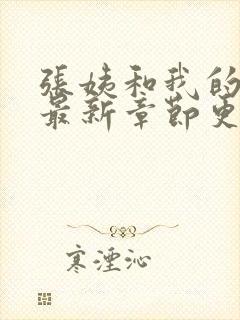 張姨和我的
最新章節更
寒湮沁